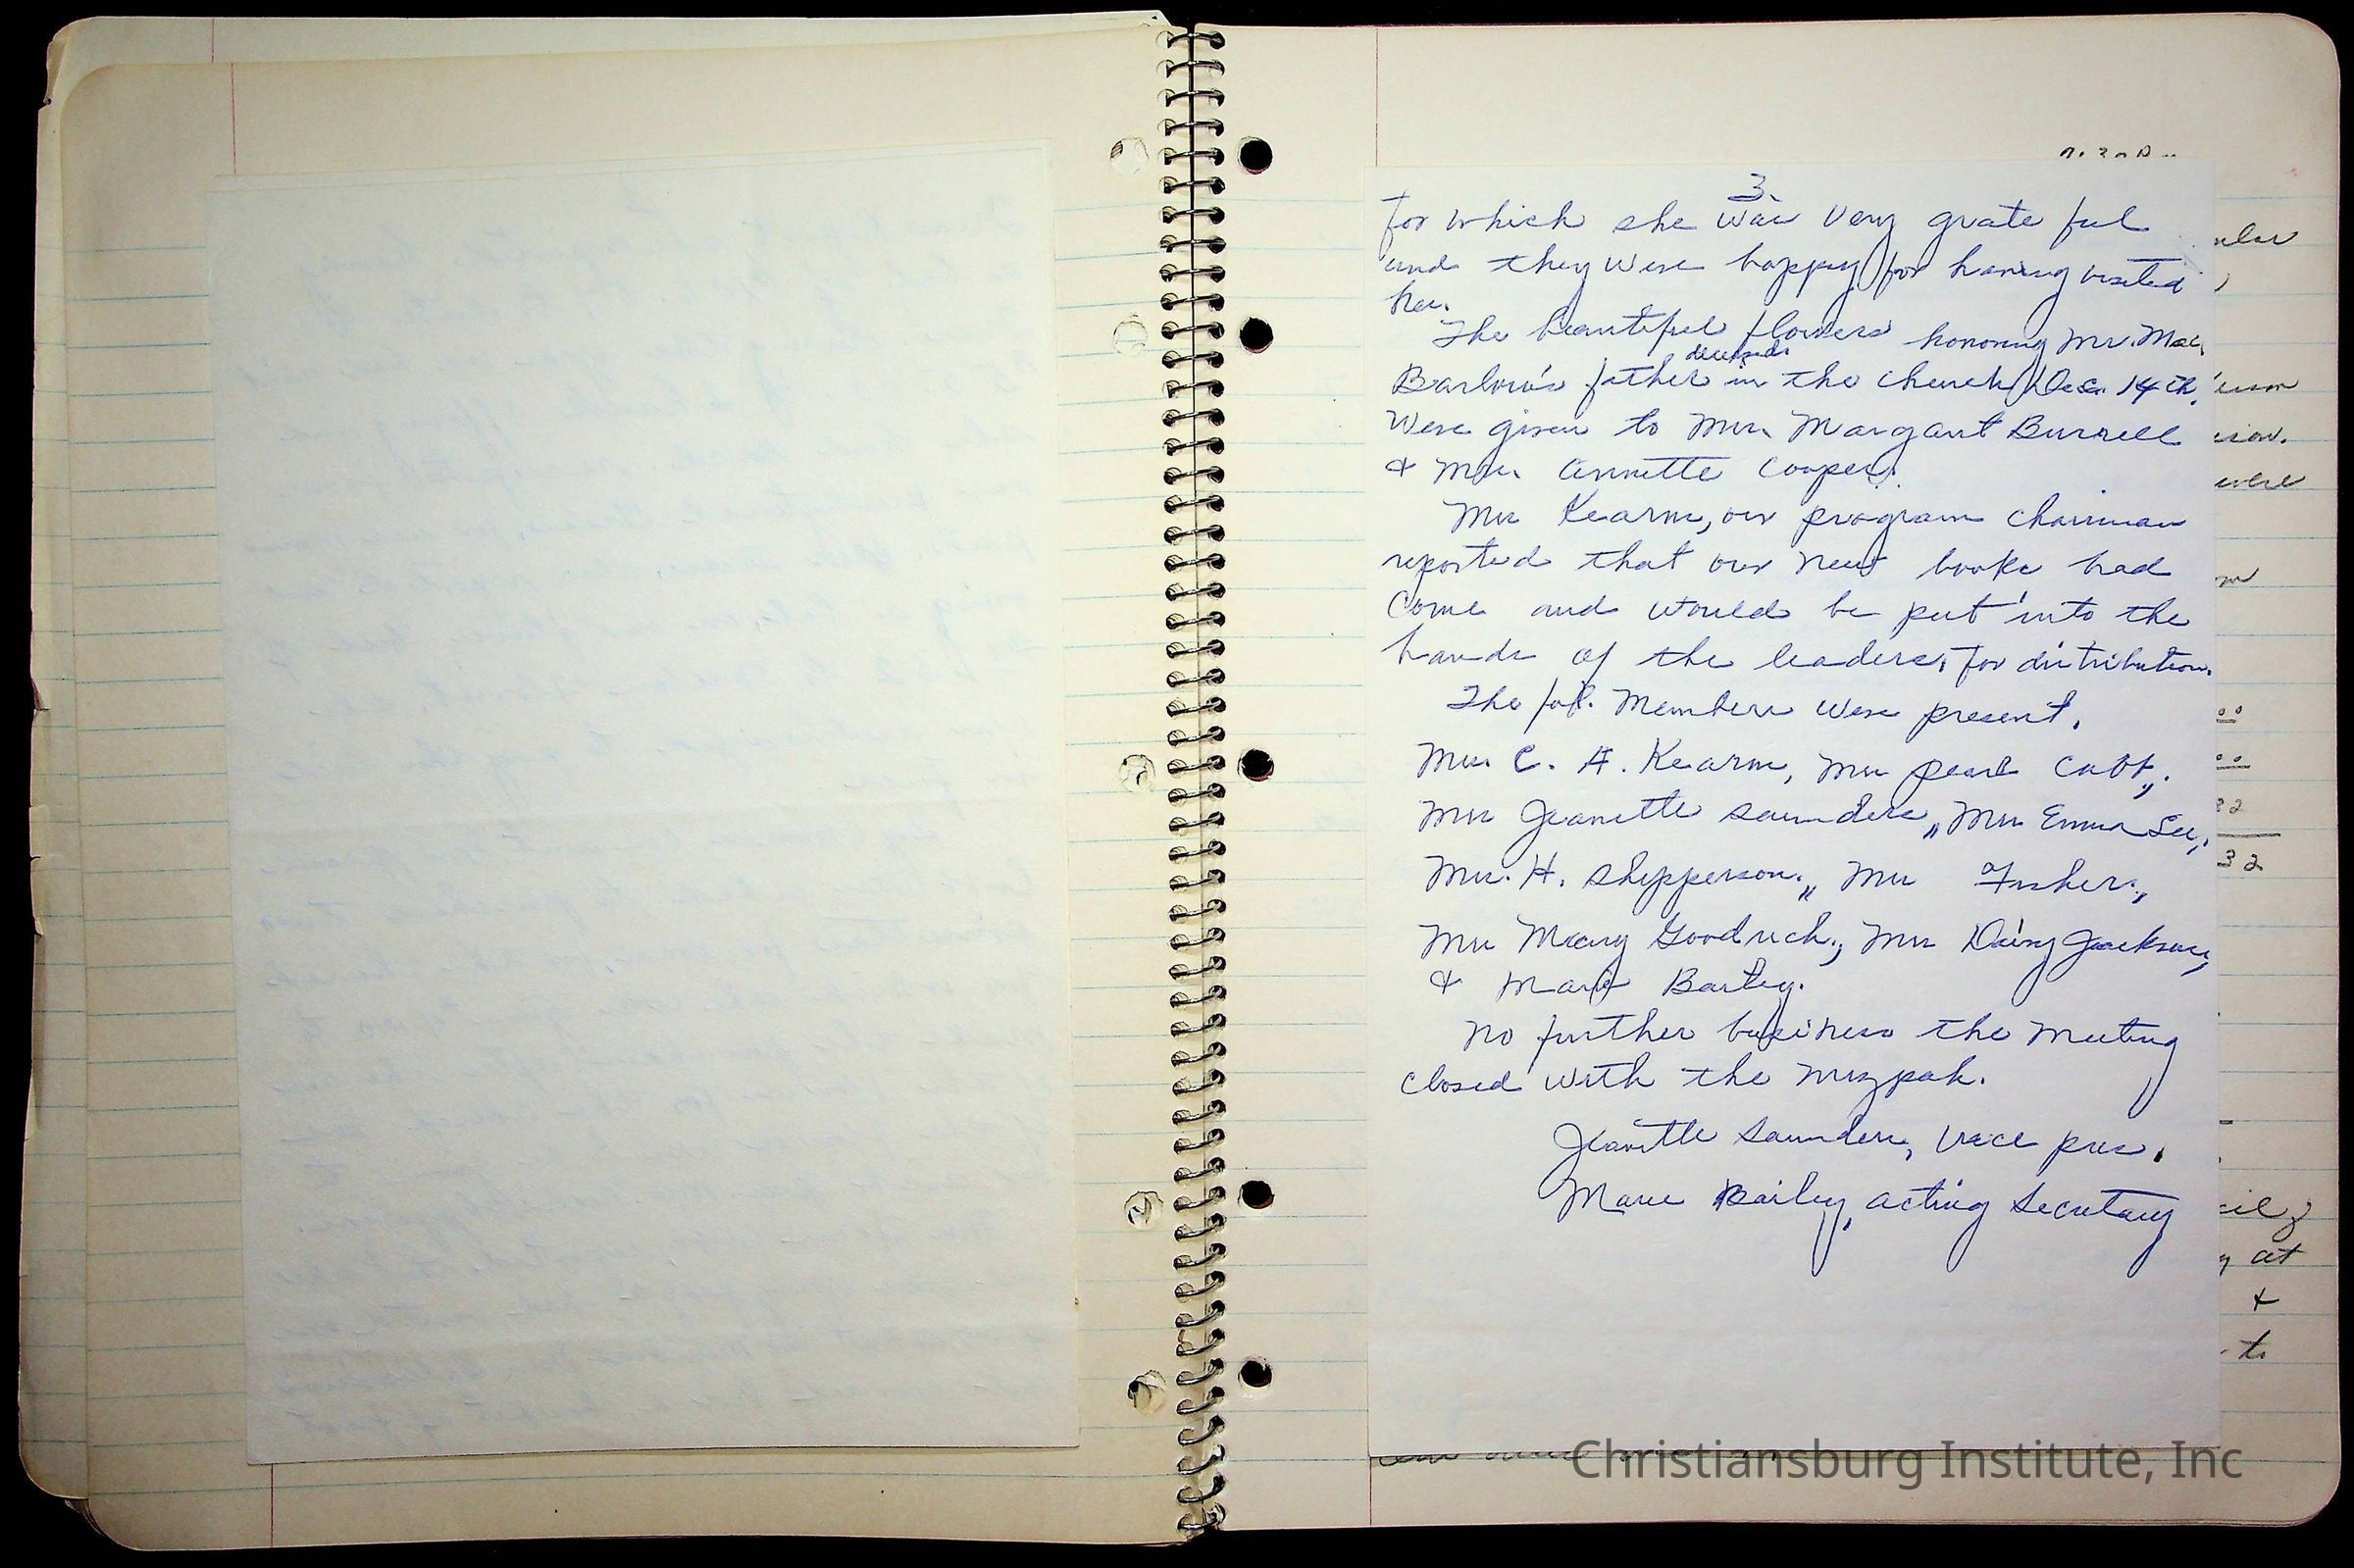 3.
for which she was very grateful
and they were happy for having visited
her.
The beautiful flowers honoring Mr. Mac
deceased.
Barlow's father in the church Dec. 14th,
were given to Mrs. Margaret Burrell
& Mrs. Annette Cooper.
Mrs Kearns, our program chairman
reported that our new books had
come and would be put into the
hands of the leaders, for distribution.
The fol. members were present.
Mrs. C. A. Kearns, Mrs Pearl Cobbs,
Mrs Jeanette Saunders, Mrs Emma Lee,
Mrs. H. Shepperson, Mrs Fisher,
Mrs Mary Goodrich, Mrs Daisy Jackson,
& Marie Bailey.
No further business the meeting
closed with the mizpah.
Jeanette Saunders, Vice pres.
Marie Bailey, acting Secretary
were
32
at
&
to
Christiansburg Institute, Inc